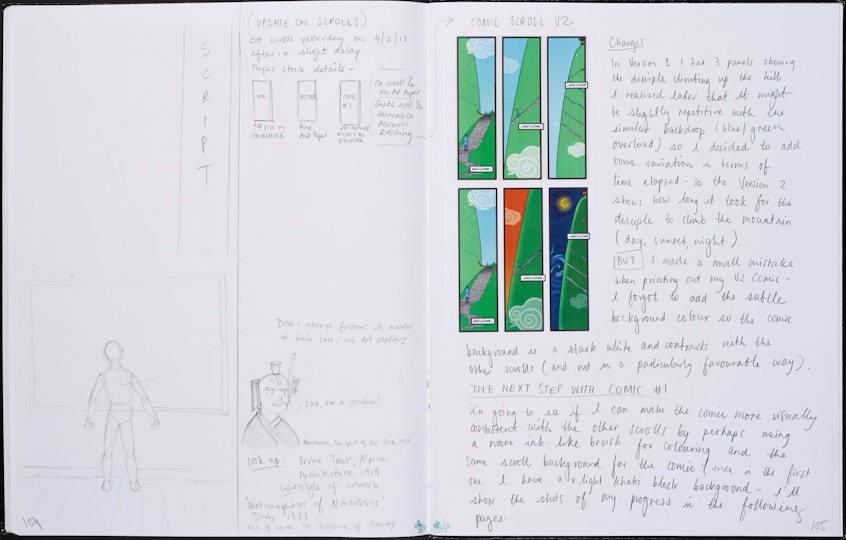 SCRIPT
(UPDATE ON SCROLLS)
Got scrolls yesterday on 4/2/13
after a slight delay.
Paper stock details -
On scroll 1/2
Fine Art Paper
Snake scroll 1/2
Museum
Etching
Fine
Art Paper
MUSEUM
ETCHING
DOG - always follows its master,
in this case, the Art Masters
Look, I'm a Creative!
Look up: Bruno Taut, Alpine
Architecture 1919
'Metamorphosis of Narcissus'
Dali, 1937
and of course The Persistence of Memory
104
COMIC SCROLL V2
Changes
In Version 1 I had 3 panels showing
the disciple climbing up the hill.
I realized later that it might
be slightly repetitive with the
similar backdrop (blue/green
overload) so I decided to add
some variation in terms of
time elapsed - so the Version 2
shows how long it took for the
disciple to climb the mountain
(day, sunset, night).
BUT I made a small mistake
when printing out my V2 comic -
I forgot to add the subtle
background colour so the comic
background is a stark white and contrasts with the
other scrolls (and not in a particularly favourable way).
THE NEXT STEP WITH COMIC #1
I'm going to see if I can make the comic more visually
consistent with the other scrolls by perhaps using
a more ink-like brush for colouring and the
same scroll background for the comic (even in the first
one I have a v. light khaki block background - I'll
show the shots of my progress in the following
pages.
105